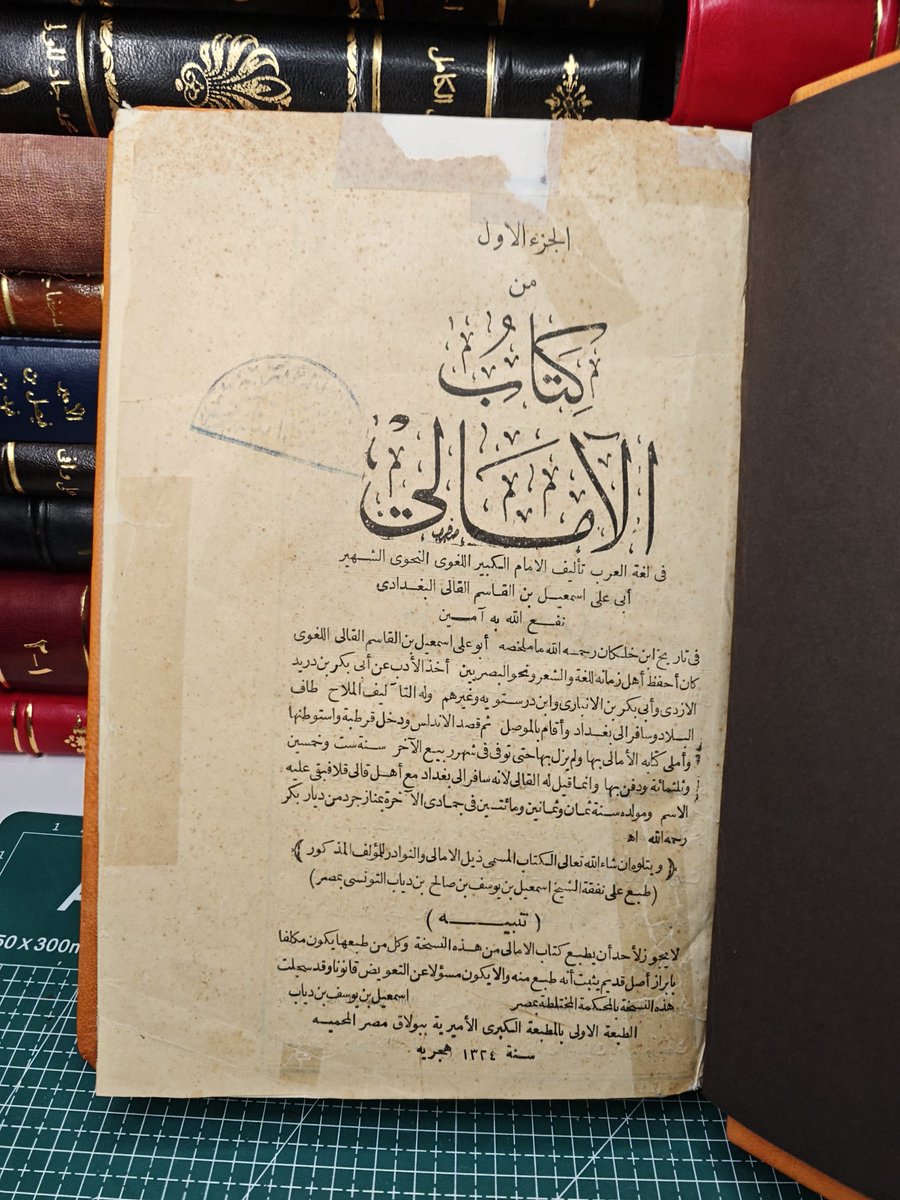 الكامل
الجزء الاول
من
كِتَابُ
الأمَالِيْ
فى لغة العرب تأليف الامام الكبير اللغوى النحوى الشهير
أبى على اسمعيل بن القاسم القالى البغدادى
نفع الله به آمين
فى تاريخ ابن خلكان رحمه الله ما ملخصه أبو على اسمعيل بن القاسم القالى اللغوى
كان أحفظ أهل زمانه للغة والشعر ونحو البصريين أخذ الأدب عن أبى بكر بن دريد
الازدى وأبى بكر بن الانبارى وابن درستويه وغيرهم وله التآليف الملاح طاف
البلاد وسافر الى بغداد وأقام بالموصل ثم قصد الاندلس ودخل قرطبة واستوطنها
وأملى كتابه الأمالى بها ولم يزل بها حتى توفى فى شهر ربيع الآخر سنة ست وخمسين
وثلثمائة ودفن بها وانما قيل له القالى لانه سافر الى بغداد مع أهل قالى قلا فبقى عليه
الاسم ومولده سنة ثمان وثمانين ومائتين فى جمادى الآخرة بمنازجرد من ديار بكر
رحمه الله اه
﴿ ويتلوه ان شاء الله تعالى الكتاب المسمى ذيل الامالى والنوادر للمؤلف المذكور ﴾
(طبع على نفقة الشيخ اسمعيل بن يوسف بن صالح بن دياب التونسى بمصر)
(تنبيـــه)
لا يجوز لأحد أن يطبع كتاب الامالى من هذه النسخة وكل من طبعها يكون مكلفا
بابراز أصل قديم يثبت أنه طبع منه والا يكون مسؤلا عن التعويض قانونا وقد سجلت
هذه النسخة بالمحكمة المختلطة بمصر اسمعيل بن يوسف بن دياب
الطبعة الاولى بالمطبعة الكبرى الأميرية ببولاق مصر المحميه
سنة ١٣٢٤ هجريه
١-٣